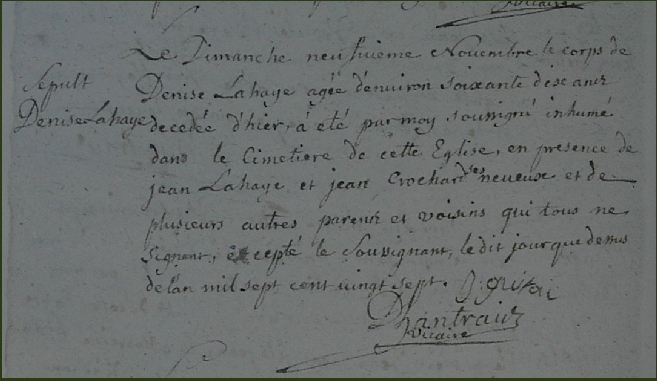 vicaire
Le Dimanche neufvieme Novembre le corps de
Sepult
Denise Lahaye
Denise Lahaye agée d'environ soixante dix ans
decedée d'hier, á eté par moy soussigné inhumé
dans le Cimetiere de cette Eglise, en presence de
jean Lahaye et jean Crochard ses neveux et de
plusieurs autres parens et voisins qui tous ne
signant, excepté le Soussignant, le dit jour que dessus
de l'an mil sept cent vingt sept.
vicaire